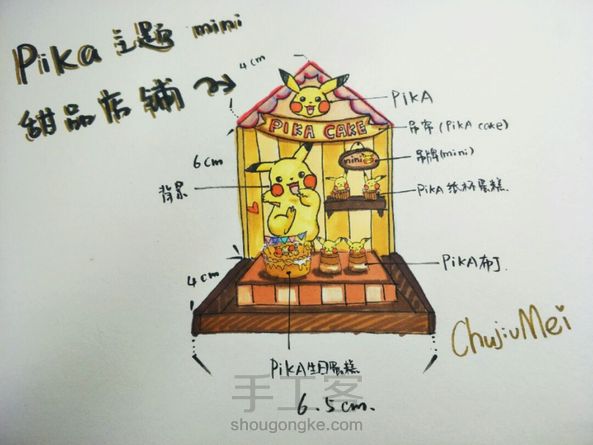 Pika 主题 mini
甜品店铺
4cm
PiKA
PIKA CAKE
(PiKA cake)
吊牌(mini)
mini
6cm
背景
PiKA 纸杯蛋糕
4cm
PiKA布丁
ChujiuMei
PiKA生日蛋糕
6.5cm.
手工客
shougongke.com